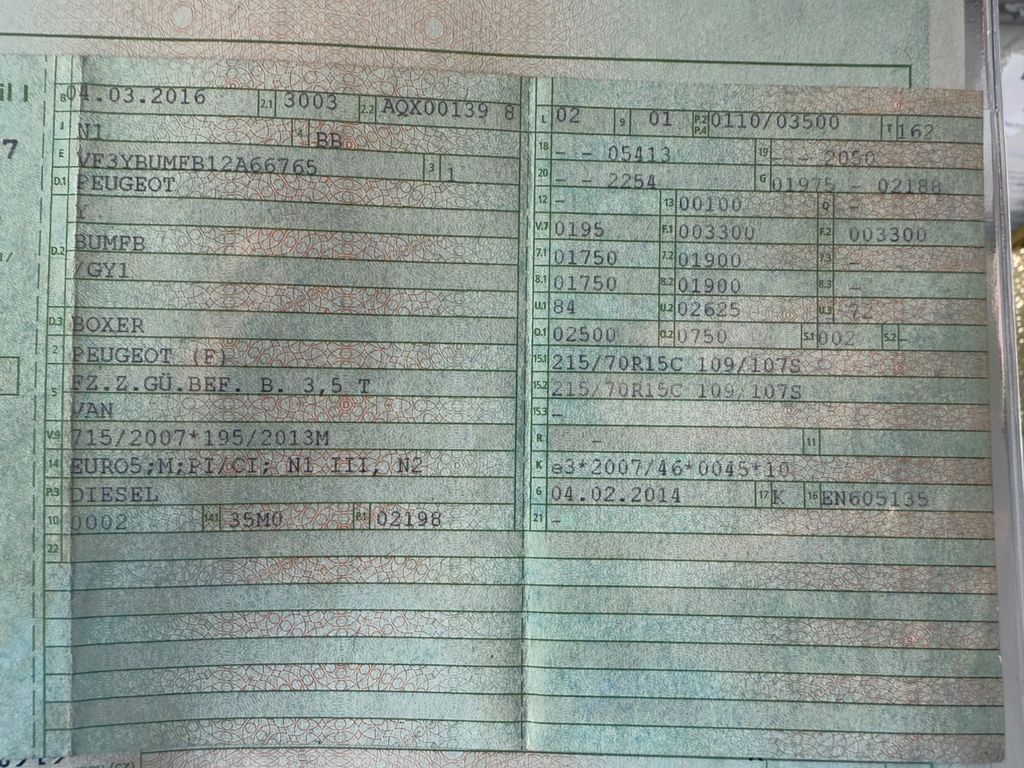 il I
7
B 04.03.2016 2.1 3003 2.2 AQX00139 8
J N1 4 BB
E VF3YBUMFB12A66765 3 1
D.1 PEUGEOT
Y
D.2 BUMFB
/GY1
D.3 BOXER
2 PEUGEOT (F)
5 FZ.Z.GÜ.BEF. B. 3,5 T
VAN
V.9 715/2007*195/2013M
14 EURO5;M;PI/CI; N1 III, N2
P.3 DIESEL
10 0002 14.1 35M0 P.1 02198
22
L 02 9 01 P.2 P.4 0110/03500 T 162
18 - - 05413 19 - - 2050
20 - - 2254 G 01975 - 02188
12 - 13 00100 Q -
V.7 0195 F.1 003300 F.2 003300
7.1 01750 7.2 01900 7.3 -
8.1 01750 8.2 01900 8.3 -
U.1 84 U.2 02625 U.3 72
O.1 02500 O.2 0750 S.1 002 S.2 -
15.1 215/70R15C 109/107S
15.2 215/70R15C 109/107S
15.3 -
R - 11
K e3*2007/46*0045*10
6 04.02.2014 17 K 16 EN605135
21 -